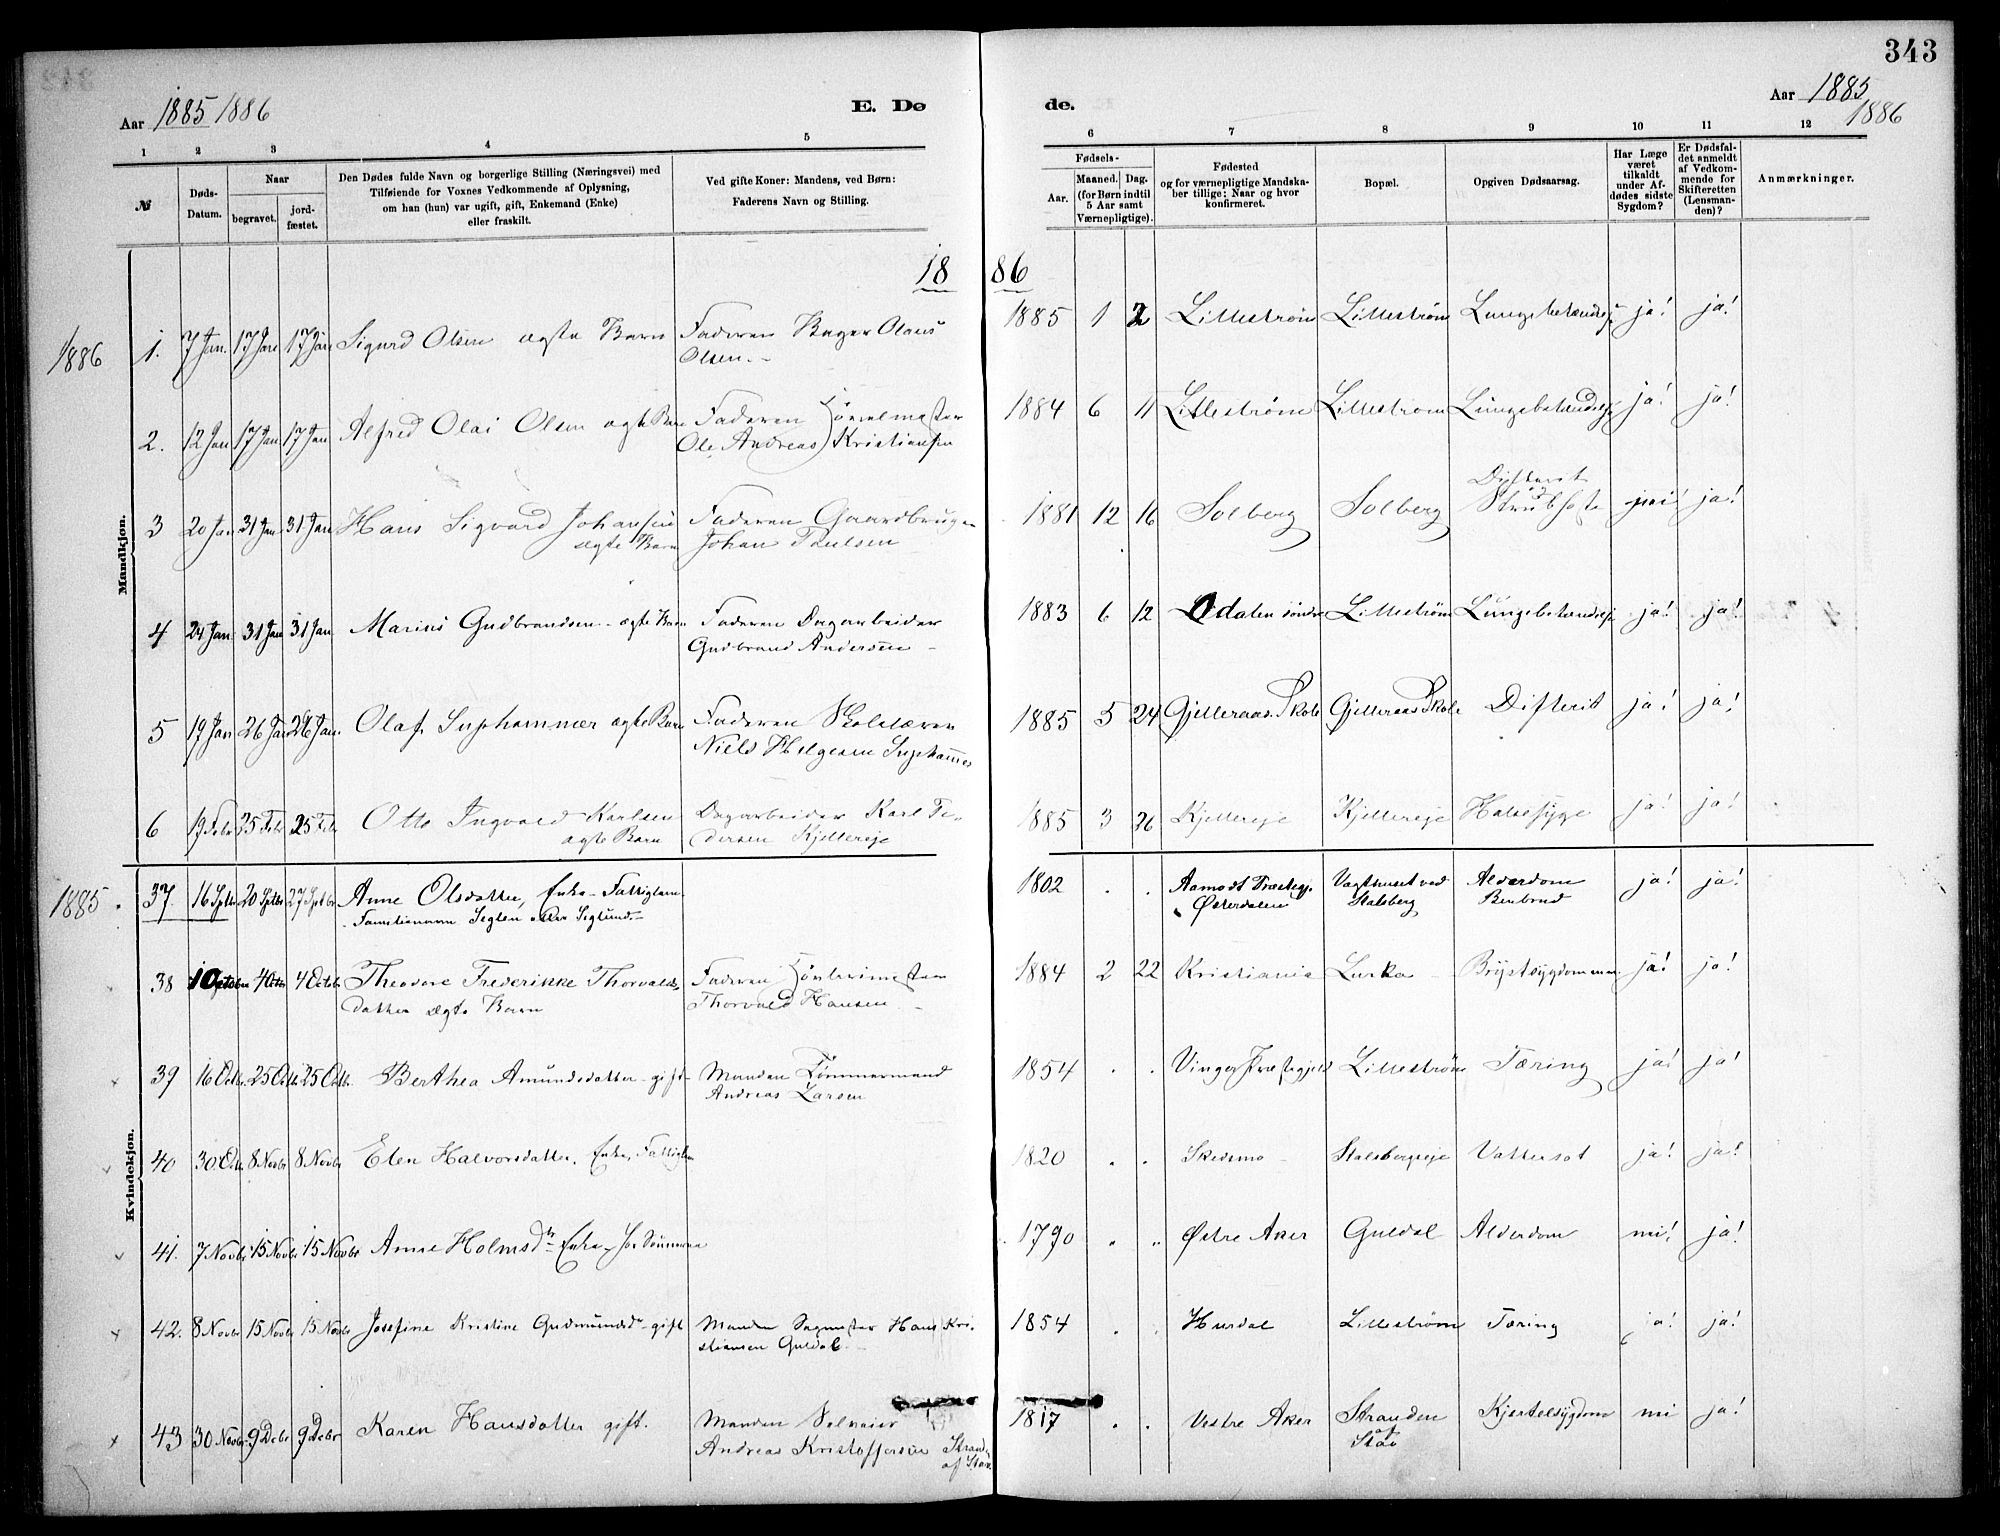 343
Aar 1885 1886
E. Dø
de.
Aar 1885
1886
1 2 3 4 5
6 7 8 9 10 11 12
№
Døds-Datum.
Naar
begravet.
jord-fæstet.
Den Dødes fulde Navn og borgerlige Stilling (Næringsvei) med
Tilføiende for Voxnes Vedkommende af Oplysning,
om han (hun) var ugift, gift, Enkemand (Enke)
eller fraskilt.
Ved gifte Koner: Mandens, ved Børn:
Faderens Navn og Stilling.
Fødsels-
Aar.
Maaned. Dag.
(for Børn indtil
5 Aar samt
Værnepligtige).
Fødested
og for værnepligtige Mandska-
ber tillige: Naar og hvor
konfirmeret.
Bopæl.
Opgiven Dødsaarsag.
Har Læge
været
tilkaldt
under Af-
dødes sidste
Sygdom?
Er Dødsfal-
det anmeldt
af Vedkom-
mende for
Skifteretten
(Lensman-
den)?
Anmærkninger.
18 86
Mandkjøn.
1886
1. 7 Jan. 17 Jan 17 Jan Sigurd Olsen ægte Barn Faderen Bager Olaus
Olsen.-
1885 1 2 Lillestrøm Lillestrøm Lungebetændelse ja! ja!
2. 12 Jan 17 Jan 17 Jan Alfred Olai Olsen ægte Barn Faderen
Ole Andreas Kristiansen
1884 6 11 Lillestrøm Lillestrøm Lungebetændelse ja! ja!
3 20 Jan 31 Jan 31 Jan Hans Sigvard Johansen Faderen Gaardbruger
ægte Barn Johan Paulsen
1881 12 16 Solberg Solberg Difterit
Strubhoste nei! ja!
4 24 Jan 31 Jan 31 Jan Marius Gudbrandsen - ægte Barn Faderen Dagarbeider
Gudbrand Andersen -
1883 6 12 Odalen søndre Lillestrøm Lungebetændelse ja! ja!
5 19 Jan 26 Jan 26 Jan. Olaf Inghammer ægte Barn Faderen Skolelærer
Niels Helgesen Inghammer
1885 5 24 Gjelleraas Skole Gjelleraas Skole Difterit ja! ja!
6 19 Febr 25 Febr 25 Febr Otto Ingvald Karlsen Dagarbeider Karl Pe-
ægte Barn dersen Kjellereje
1885 3 26 Kjellereje Kjellereje Halssyge ja! ja!
Kvindekjøn.
1885.
37. 16 Sptbr 20 Sptbr 27 Sptbr Anne Olsdatter, Enke - Fattiglem.
Familienavn Seglen eller Seglund -
1802 . . Aamodt Præstegj. Vagthuset ved Alderdom ja! ja!
Østerdalen Stalsberg Benbrud
38 1 October 4 Octbr 4 Octob Theodore Frederikke Thorvalds- Faderen
datter ægte Barn Thorvald Hansen -
1884 2 22 Kristiania Lurka - Brystsygdommen ja! ja!
39 16 Octbr 25 Octbr 25 Octbr Berthea Amundsdatter - gift - Manden Tømmermand
Andreas Larsen
1854 . . Vinger Præstegjeld Lillestrøm Tæring ja! ja!
40 30 Octb 8 Novbr 8 Novbr Elen Halvorsdatter. Enke, Fattiglem
1820 . . Skedsmo - Stalsbergeje Vattersot ja! ja!
41. 7 Novbr 15 Novbr 15 Novbr Anne Holmsdtr Enke
1790 . . Østre Aker Guldal Alderdom nei! ja!
42. 8 Novbr 15 Novbr 15 Novbr Josefine Kristine Gudmundsdr - gift Manden Sagmester Hans Kri-
stiansen Guldal -
1854 . . Hurdal Lillestrøm Tæring ja! ja!
43 30 Novbr 9 Debr 9 Debr Karen Hansdatter gift. Manden Selveier
Andreas Kristoffersen Stranden
af Stav
1817 . . Vestre Aker Stranden Kjertelsygdom nei ja!
af
Stav